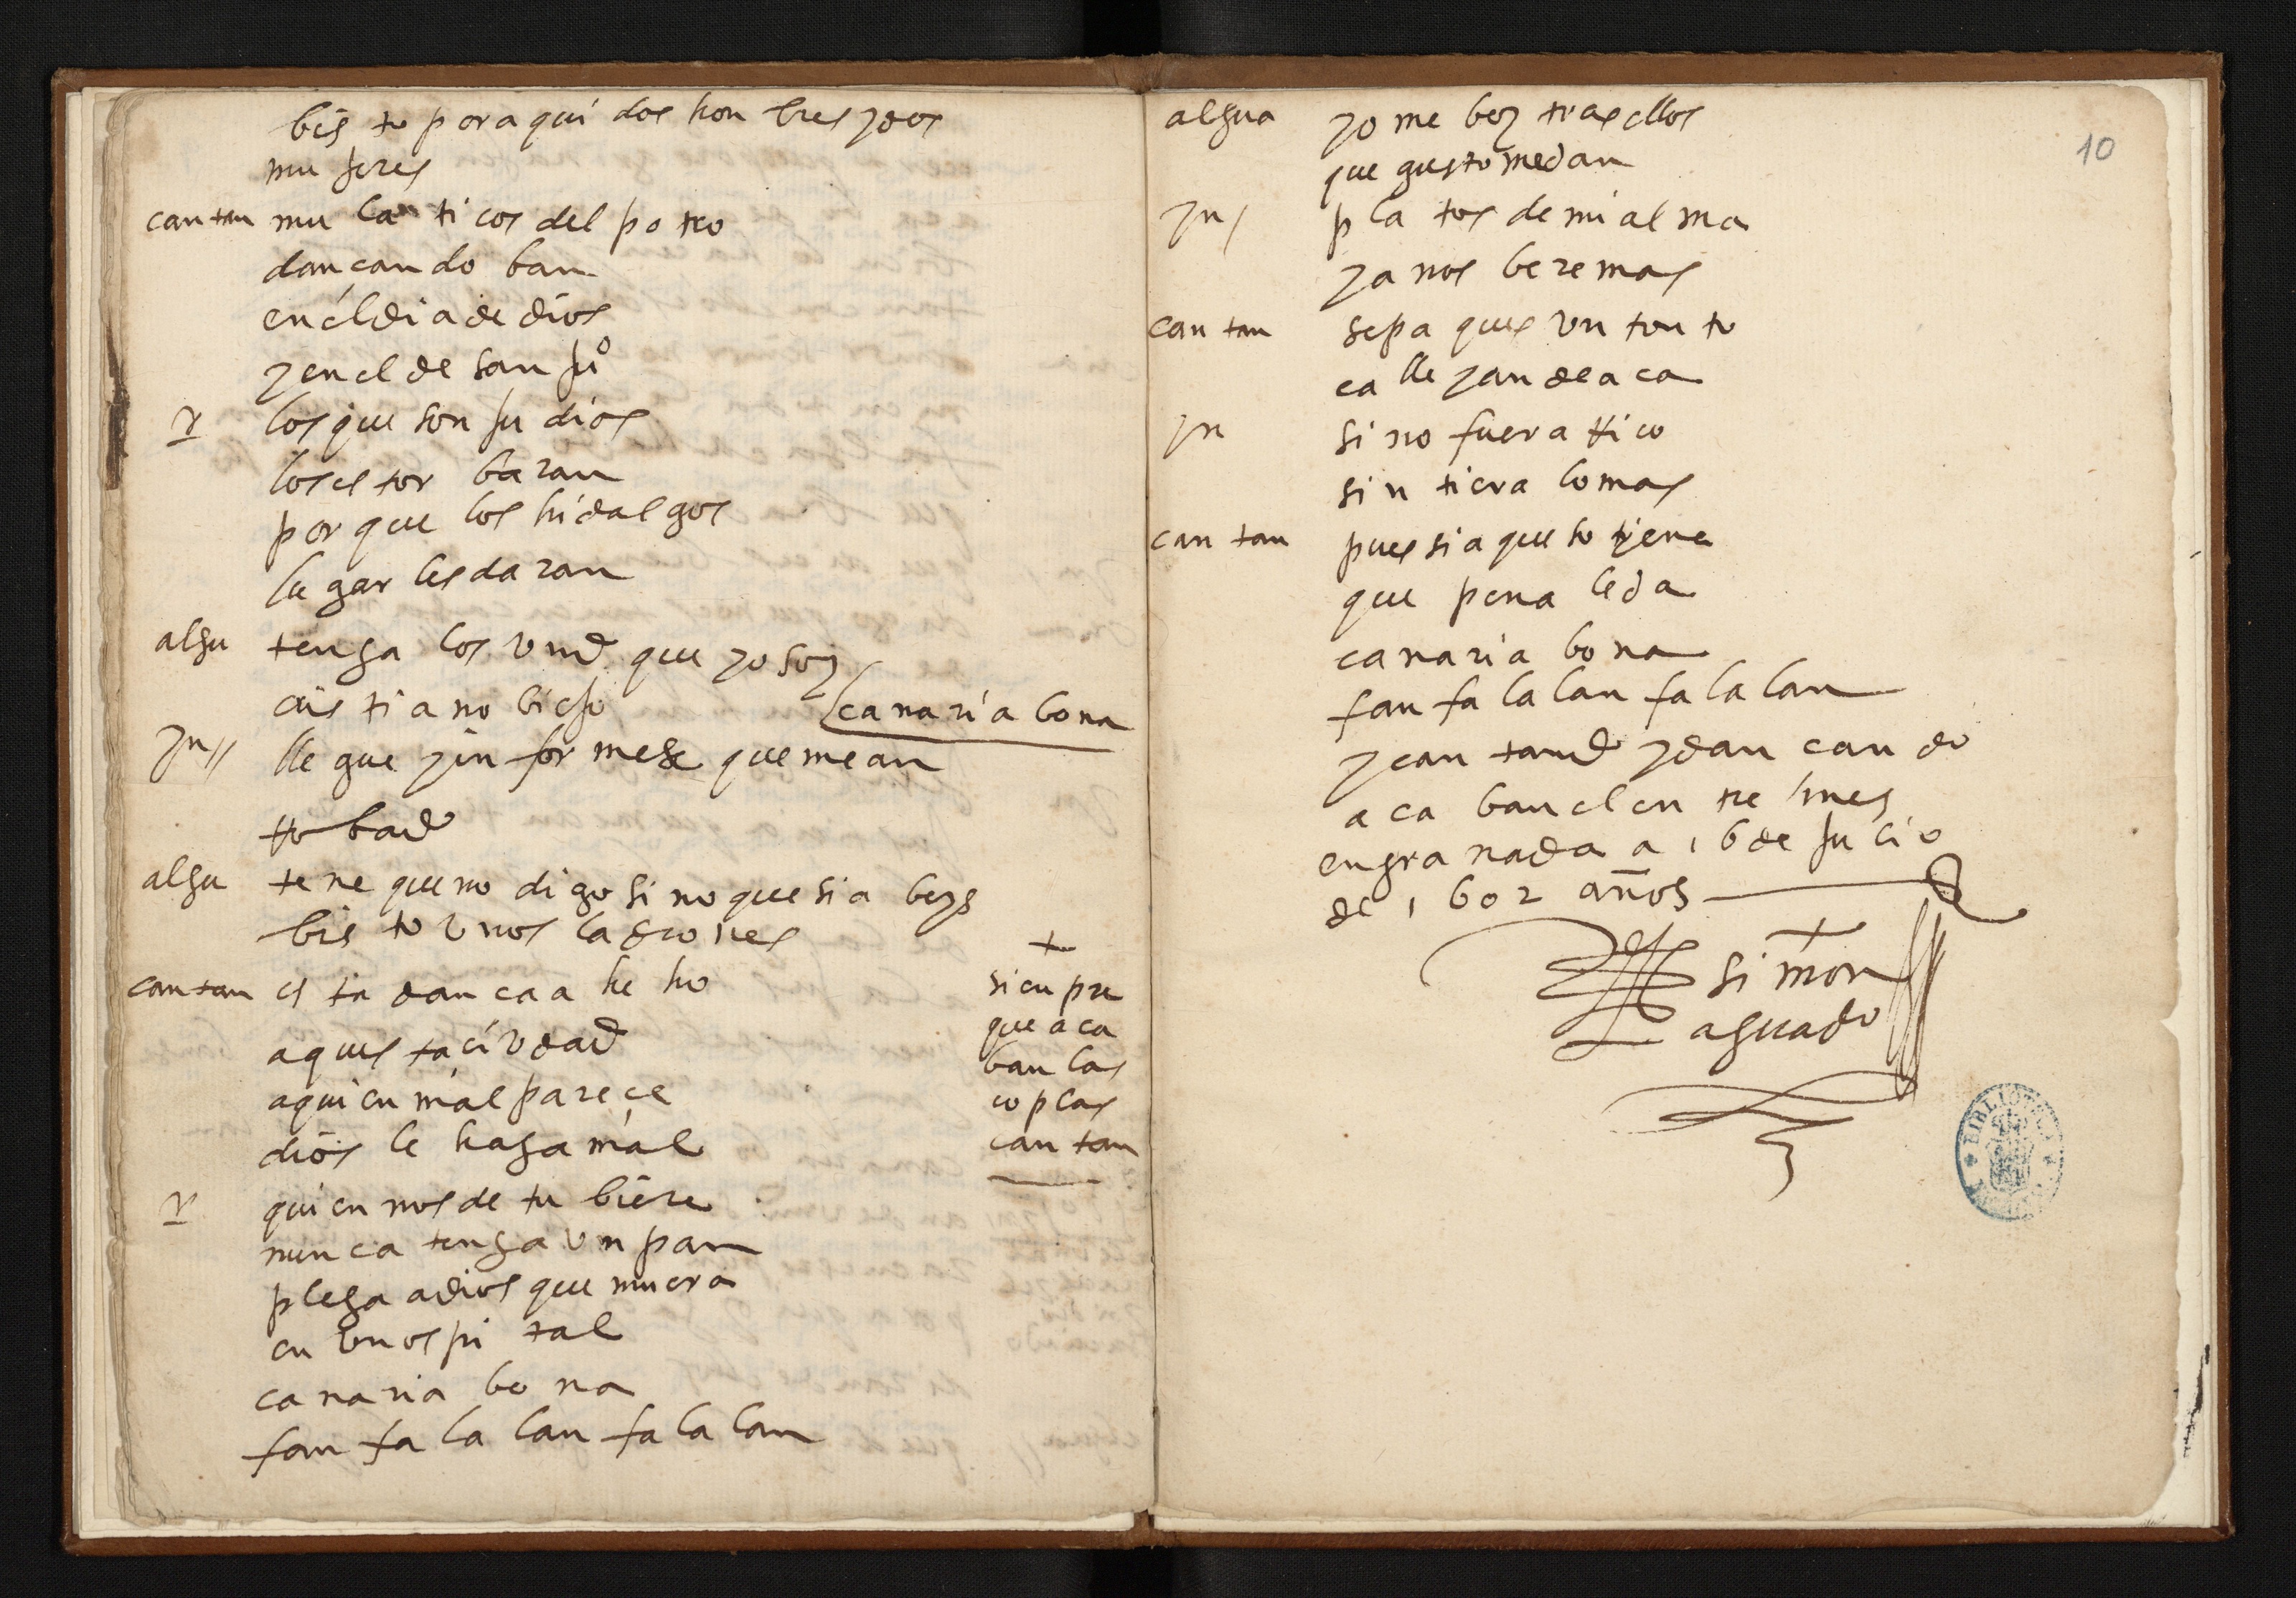 bisto por aqui dos honbres y dos
mujeres
cantan mulaticos del potro
dançando ban
en el dia de dios
y en el de san ju°
r los que son judios
los estorbaran
porque los hidalgos
lugar les daran
algu tengalos vmd que yo soy
cristiano biejo
canaria bona
yn// llegue y informese que me an
robad
algu tene que no digo sino que si abeys
bisto unos ladrones
cantan esta dança a heho
aquesta ciudad
a quien mal pareçe
dios le haga mal
r quien nos detubiere
nunca tenga un pan
plega a dios que muera
en un ospital
canaria bona
fan falalan falalan
+
sienpre
que aca
ban las
coplas
cantan
10
algua yo me boy tras ellos
que gusto me dan
yn/ platos de mi alma
ya nos beremos
cantan sepa ques un tonto
calle y ande aca
yn si no fuera rico
sintiera lo mas
cantan pues si aqueso tiene
que pena le da
canaria bona
fan falalan falalan
y cantand y dançando
acaban el entremes
en granada a 16 de julio
de 1602 años
simon
aguado
BIBLIOTECA